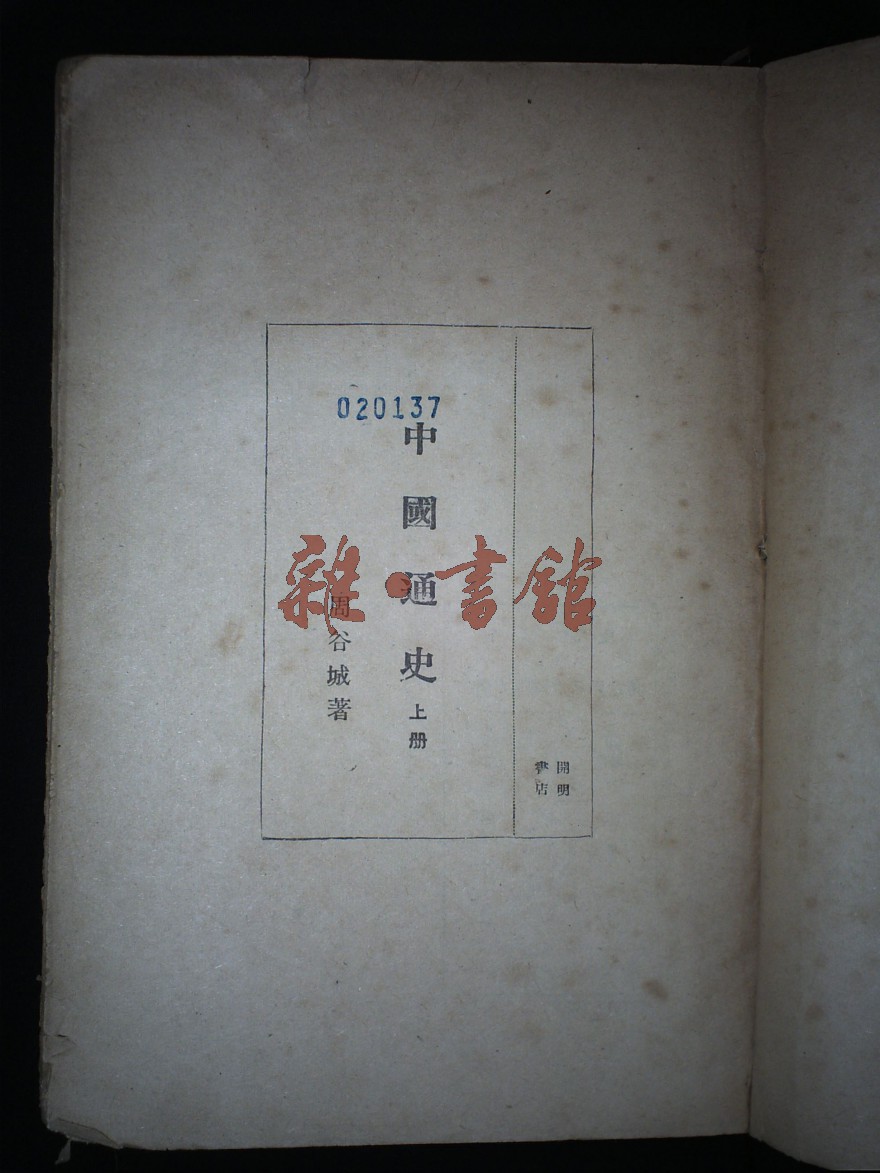 020137
中國通史 上册
周谷城著
開明
書店
雜·書館